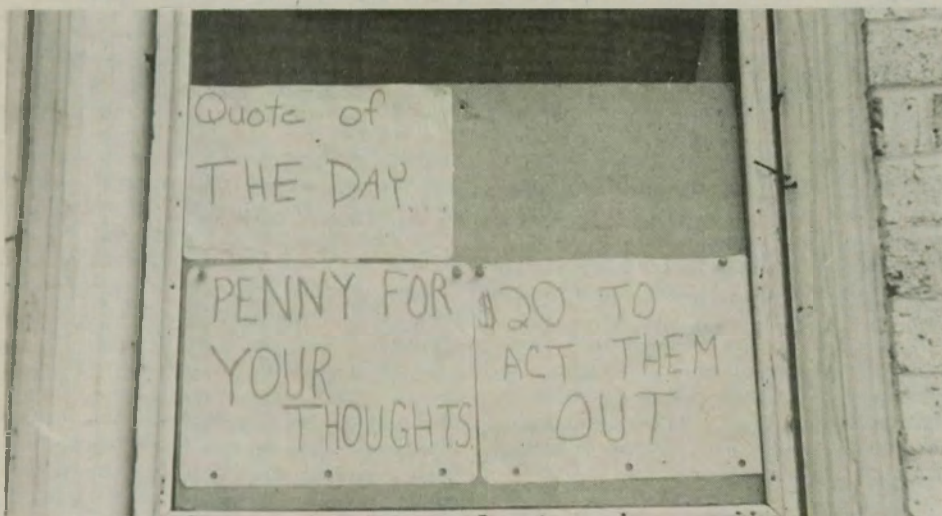 Quote of
THE DAY...
"PENNY FOR
YOUR
THOUGHTS
$20 TO
ACT THEM
OUT